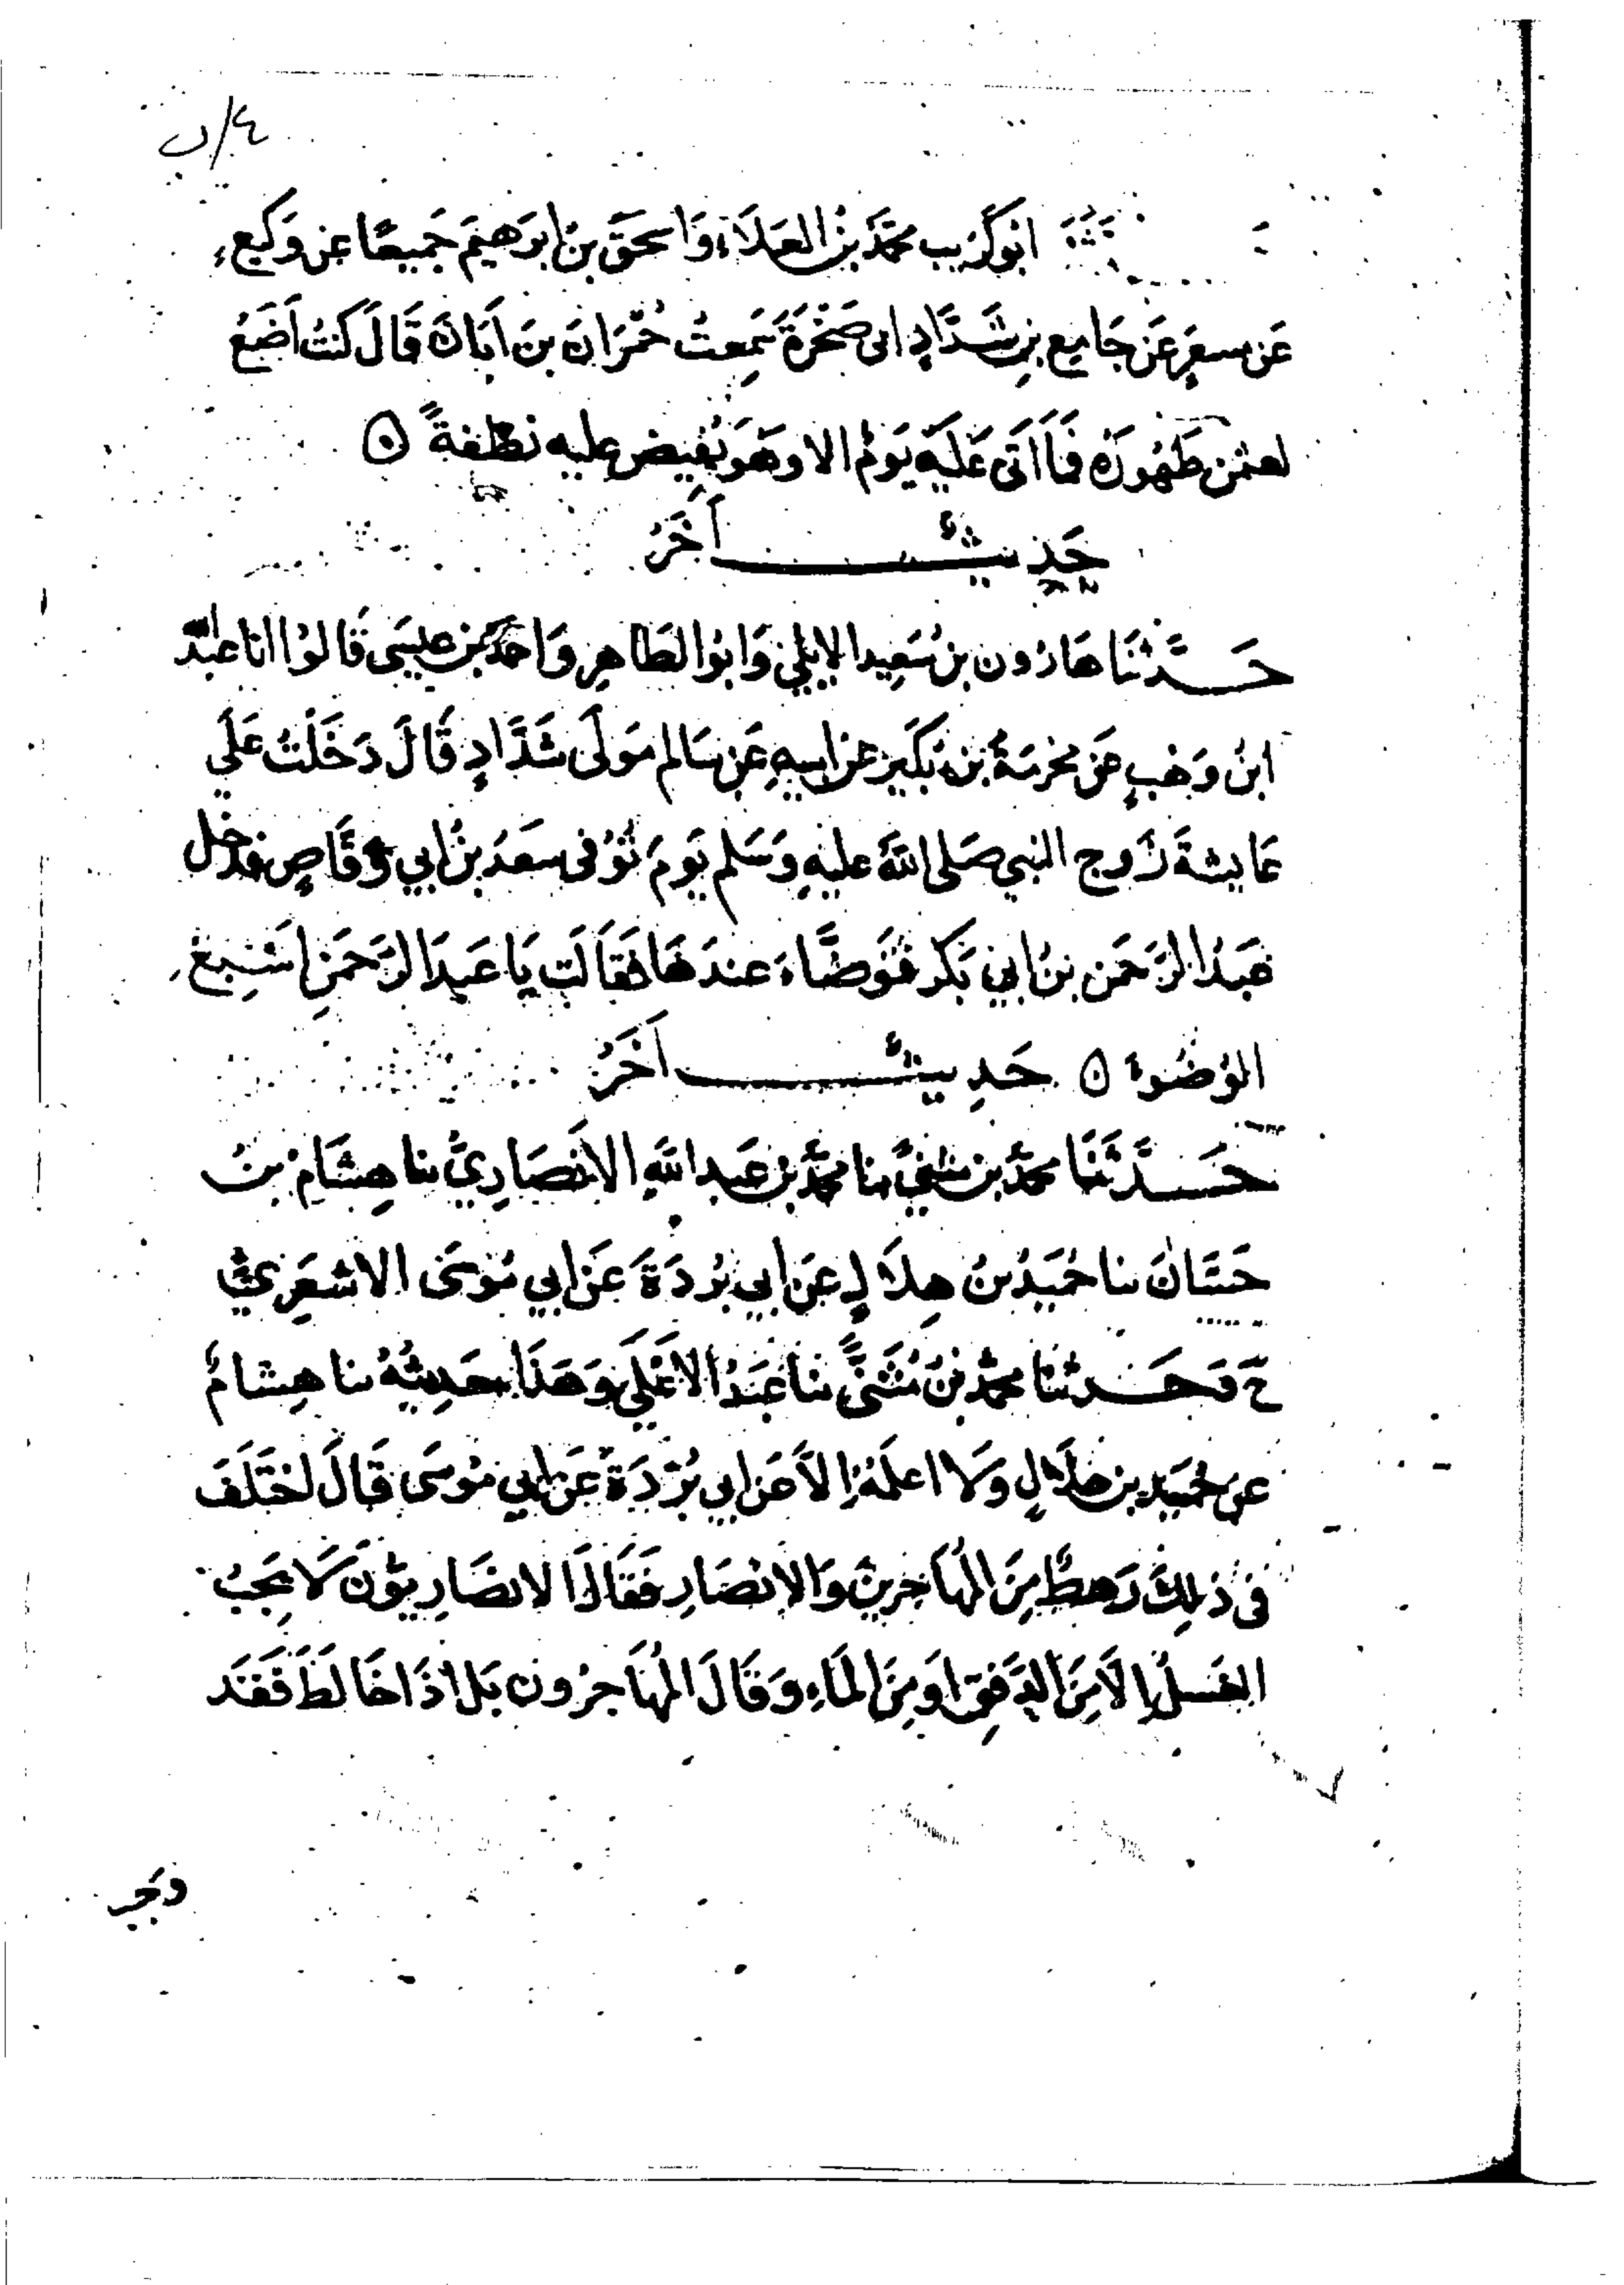 ٤/ب
ابُو كُرَيب محمَّد بنُ العَلَاء وَاسحَق بنُ ابرَهيمَ جَميعًا عن وَكيعٍ
عَن مسعَرٍ عَن جَامِع بنِ شَدَّادٍ ابى صَخْرَةَ سَمِعتُ حُمْرَانَ بنَ اَبَانَ قَالَ كنتُ اَضَعُ
لعثمن طَهُورَهُ فَمَا اَتَى عَلَيهِ يَومٌ الا وهُو يُفيض عليه نطفةً ۞
حَدِيثٌ اَخَرُ
حَدَّثنَا هَارُون بن سَعِيد الايلي وَابوُ الطَاهِرِ وَاحمدُ بن عيسَى قَالوُا انا عبدُ الله
ابنُ وَهبٍ عَن مخرمَةَ بنِ بُكَيرٍ عَن ابيهِ عَن سَالم مَولَى شَدَّادٍ قَالَ دَخَلتُ عَلَي
عَايشةَ زَوج النبي صَلى اللهُ عليهِ وَسَلم يَومَ تُوُفى سَعدُ بنُ ابي وَقَّاصٍ فدَخل
عَبدُ الرَحمَن بنُ ابي بَكر فتَوَضَّاءَ عندَهَا فقَالَت يَا عَبدَ الرَحمَنِ اسْبِغ
الوُضُوء ۞ حَدِيثٌ اَخَرُ
حَدَّثَنَا محمدُ بن مثنى نا محمدُ بن عَبد اللهِ الانصَارِيُّ نا هِشَامُ بنُ
حَسَّانَ نا حُمَيدُ بنُ هِلَالٍ عَن ابي بُردَةَ عَن ابي مُوسَى الاشعَرِيِّ
ح وَحَدثنا محمدُ بنُ مُثَنَّى نا عَبدُ الاعْلَى وَهَذَا حَدِيثُهُ نا هِشامٌ
عَن حُمَيدِ بن هلَالٍ وَلَا اعلمُهُ اِلاَّ عَن ابي بُرْدَةَ عَن ابي مُوسَى قَالَ اختَلَفَ
فى ذلِكَ رَهطٌ مِنَ المُهَاجِرينَ وَالانصَارِ فَقَالَ الانصَارِيُّونَ لَا يَجِبُ
الغسلُ اِلَّا مِنَ الدَّفقِ اَو مِنَ المَاءِ وَقَالَ المُهَاجرُون بَل اذَا خَالَطَ فَقَد
وجب